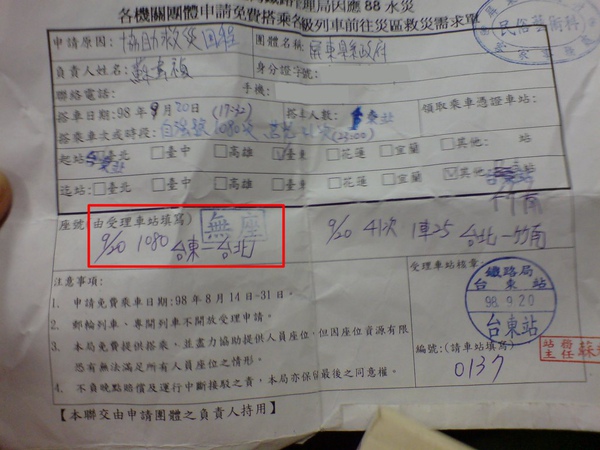 理局因應 88 水災
各機關團體申請免費搭乘各級列車前往災區救災需求單
(民俗藝術科)
申請原因: 協助救災回程
團體名稱: 屏東縣政府
負責人姓名:
身分證字號:
聯絡電話:
手機:
搭車日期: 98 年 9 月 20 日 (17:42)
搭車人數:
領取乘車憑證車站:
搭乘車次或時段: 自強號 1080次
起站: □臺北 □臺中 □高雄 ☑臺東 □花蓮 □宜蘭 □其他: 站
迄站: □臺北 □臺中 □高雄 □臺東 □花蓮 □宜蘭 ☑其他 站
竹南
座號(由受理車站填寫) 無座
9/20 1080 台東－台北
9/20 41次 1車25 台北－竹南
注意事項:
1. 申請免費乘車日期:98 年 8 月 14 日~31 日。
2. 郵輪列車、專開列車不開放受理申請。
3. 本局免費提供搭乘,並盡力協助提供人員座位,但因座位資源有限
恐有無法滿足所有人員座位之情形。
4. 不負晚點賠償及運行中斷接駁之責,本局亦保留最後之同意權。
受理車站核章:
鐵路局
台東站
98.9.20
台東站
編號:(請車站填寫)
0137
站務
主任
蘇
【本聯交由申請團體之負責人持用】